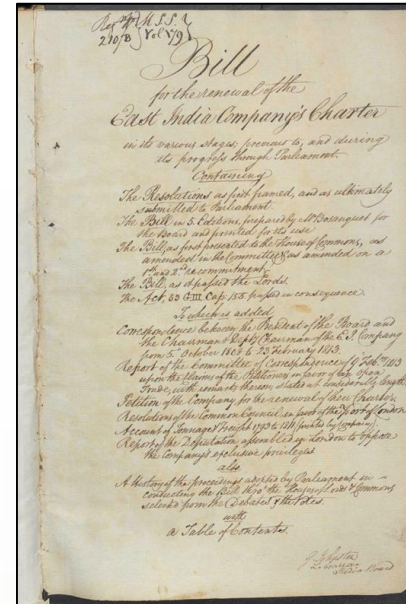 M.S.S.
Vol 179
Bill
for the renewal of the
East India Company's Charter
in its various stages previous to, and during
its progress through Parliament.
Containing
The Resolutions as first framed, and as ultimately
submitted to Parliament.
The Bill in 5 Editions, prepared by Mr Bosanquet for
the Board and printed for its use
The Bill, as first presented to the House of Commons, as
amended in the Committee, & as amended on a
1st and 2nd recommitment,
The Bill, as it passed the Lords.
The Act, 53 G. III Cap. 155 passed in consequence.
To which is added,
Correspondence between the President of the Board and
the Chairman & Depy Chairman of the E. I. Company
from 5 October to 23 February 1813.
Report of the Committee of Correspondence of 9 Feby 1813
upon the Claims of the Petitioners in favor of an Open
Trade, with remarks thereon, stated at considerable length
Petition of the Company for the renewal of their Charter.
Resolutions of the Common Council in favor of the port of London
Account of Tonnage & Freight 1793 to 1811 (printed by Company)
Report of the Deputation, assembled in London to oppose
the Company's exclusive privileges
also
A History of the proceedings adopted by Parliament in
conducting the Bill thro' the Houses of Lords & Commons
selected from the Debates & the Votes.
with
a Table of Contents.
India Board